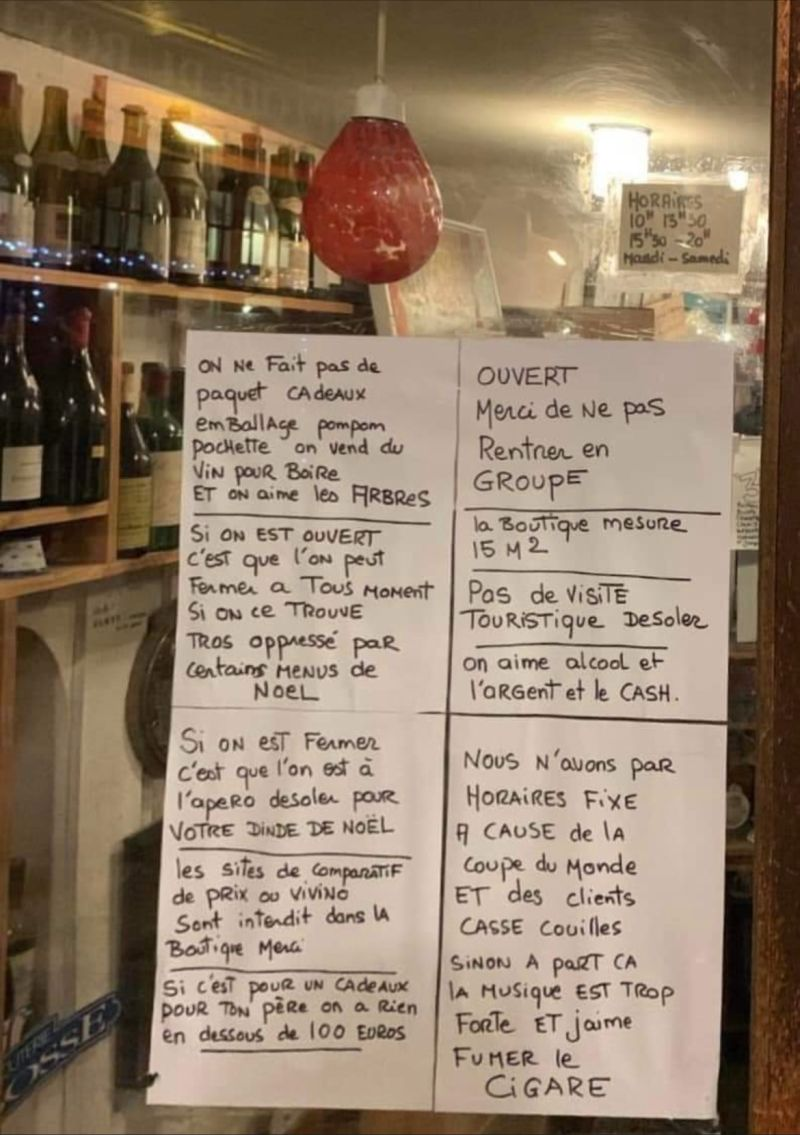 HORAIRES
10H 13H30
15H30 - 20H
Mardi - Samedi
ON Ne Fait pas de
paquet CAdeAUX
emBallAge pompom
pocHette on vend du
ViN pouR BoiRe
ET ON aime les ARBRes
Si ON EST OUVERT
c'est que l'on peut
Fermer a Tous MOMent
Si ON ce TROUVE
TROS oppressé paR
certains MENUS de
NoeL
Si ON esT Fermer
c'est que l'on est à
l'apeRO desoler pouR
VOTRE DINDE DE NOËL
les sites de comparaTiF
de pRix ou ViViNo
Sont interdit dans lA
BouTique Merci
Si c'esT pouR UN CAdeAUX
pouR TON pèRe on a Rien
en dessous de 100 EUROS
OUVERT
Merci de Ne pas
Rentrer en
GROUPE
la BouTique mesuRe
15 M2
Pas de VisiTE
TOURiSTique DesoleR
on aime alcool et
l'aRGent et le CASH.
NOUS N'avons paR
HORAIRES FiXE
A CAUSE de lA
coupe du Monde
ET des clients
CASSE Couilles
SiNON A paRT CA
lA MUSique EST TROP
FoRTe ET jaime
FUMER le
CiGARE
OSSE